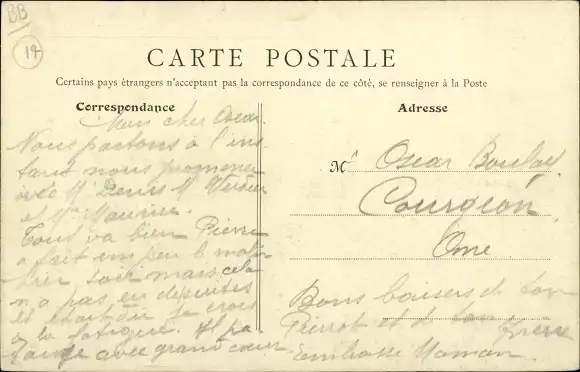 BB
14
CARTE POSTALE
Certains pays étrangers n'acceptant pas la correspondance de ce côté, se renseigner à la Poste
Correspondance
Mon cher Oscar.
Nous partons à l'ins-
tant nous promener
avec Mr Denis M
et Mme Maurier.
Tout va bien Pierre
a fait un peu le malin
hier soir mais cela
n'a pas eu de suites
et était dû je crois
à la fatigue. Il pa
avec grand cœur.
Adresse
Mr Oscar
Courgeon
Orne
Bons baisers de ton
Pierrot et de ton frère
Embrasse Maman.